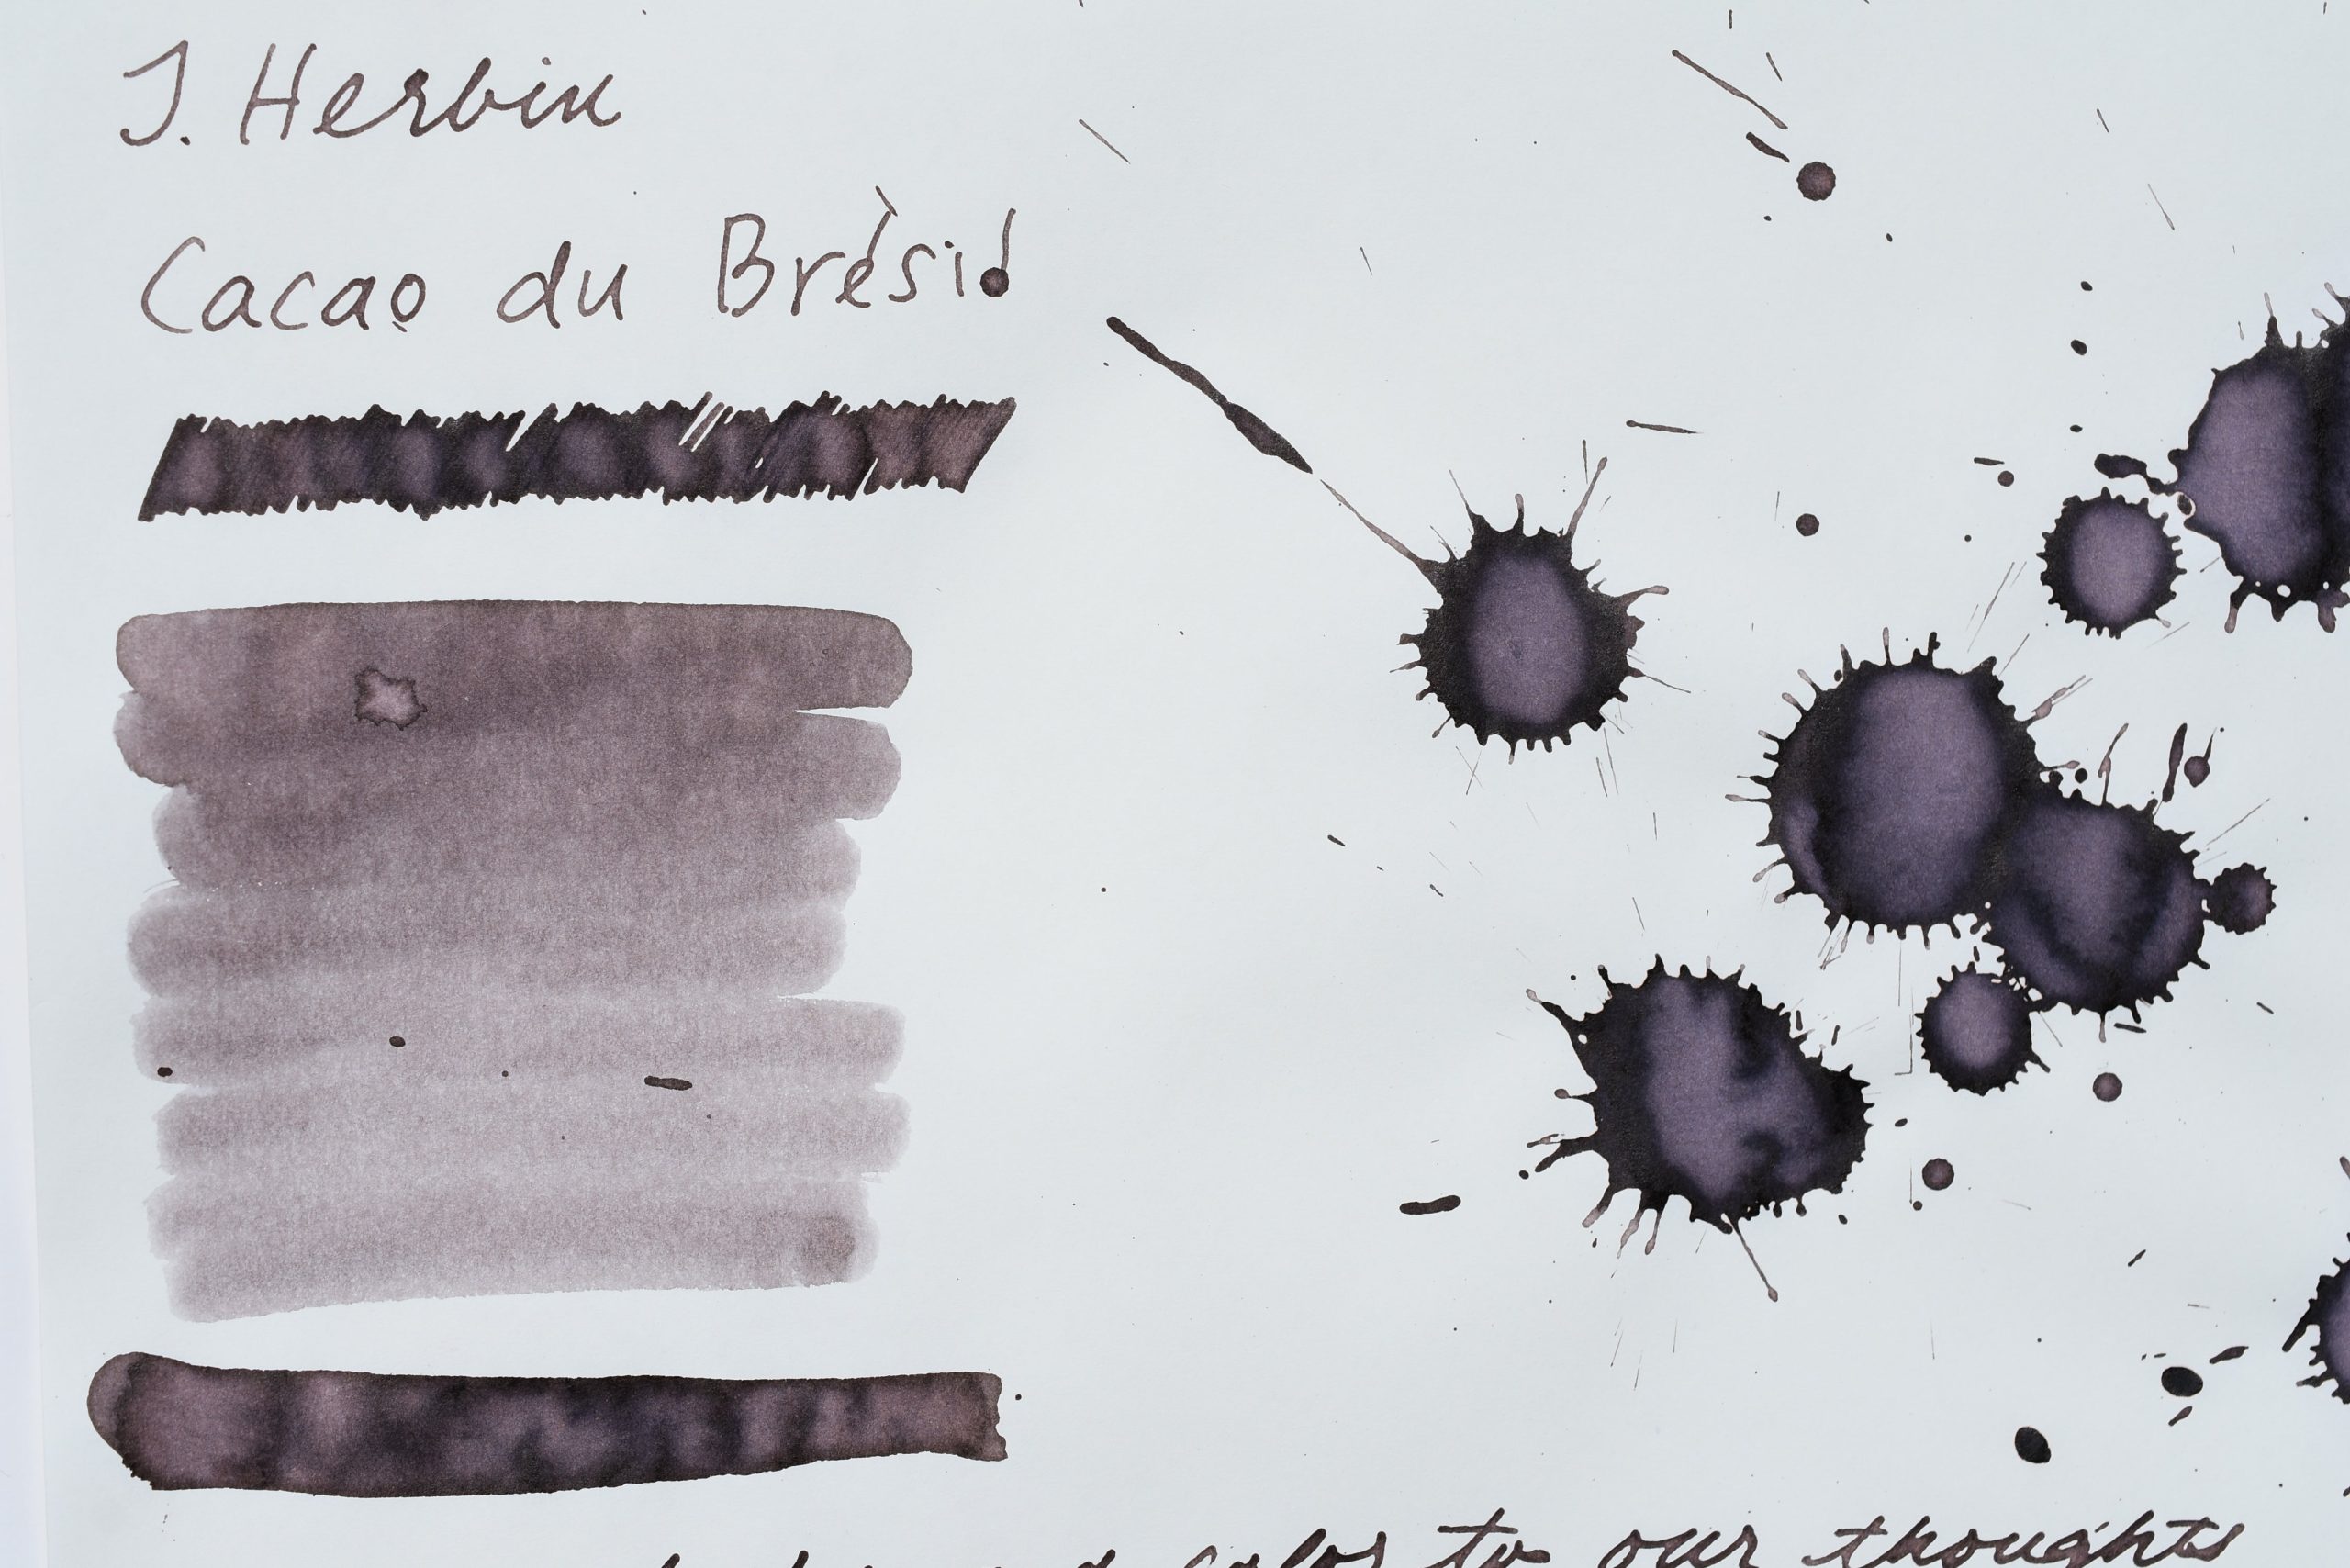 J. Herbin
Cacao du Brésil
color to our thoughts